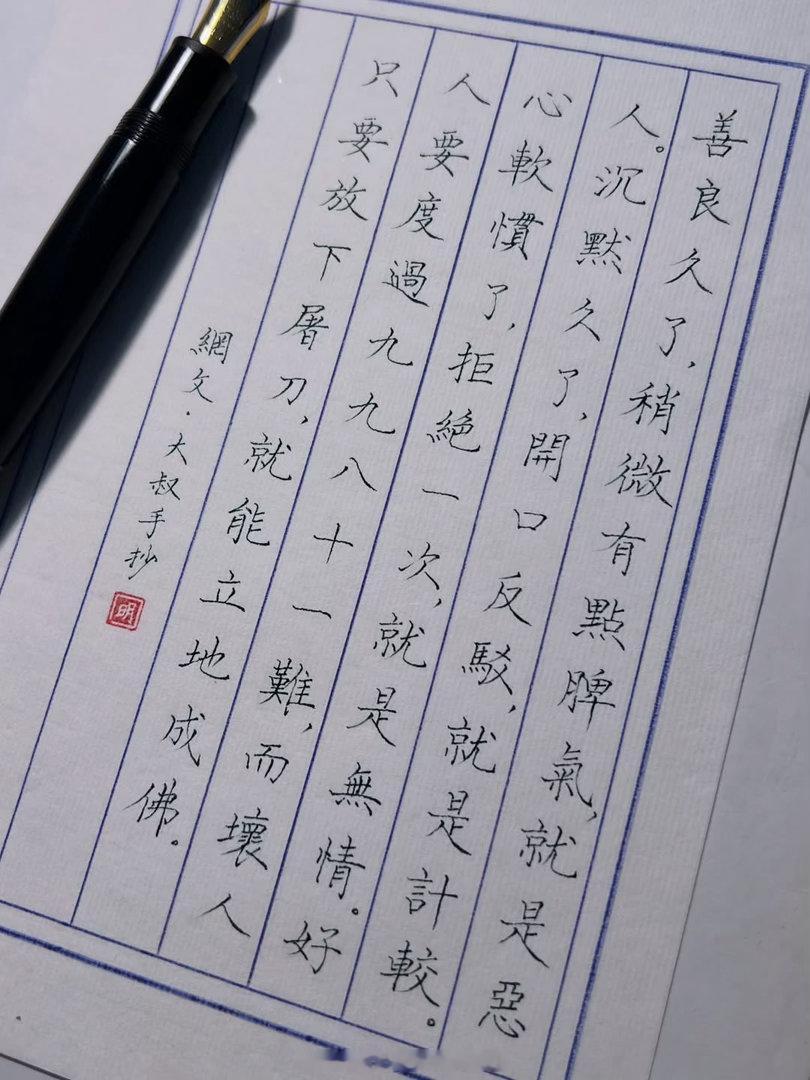 善良久了，稍微有點脾氣，就是惡
人。沉默久了，開口反駁，就是計較。
心軟慣了，拒絕一次，就是無情。好
人要度過九九八十一難，而壞人
只要放下屠刀，就能立地成佛。
網文·大叔手抄
明